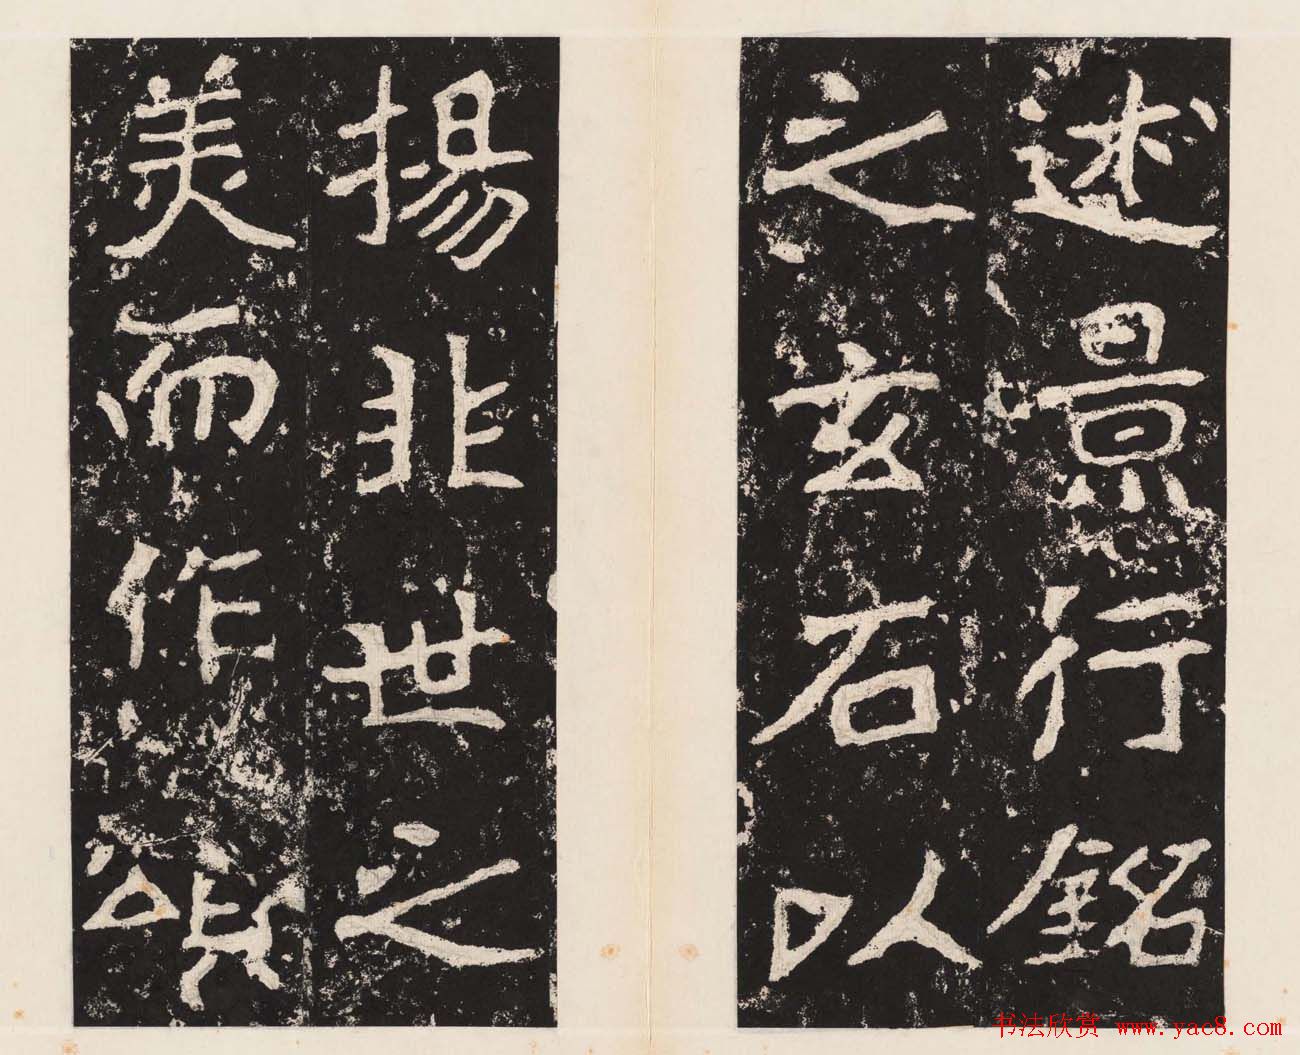 述景行銘
之玄石以
揚非世之
美而作頌
书法欣赏 www.yac8.com